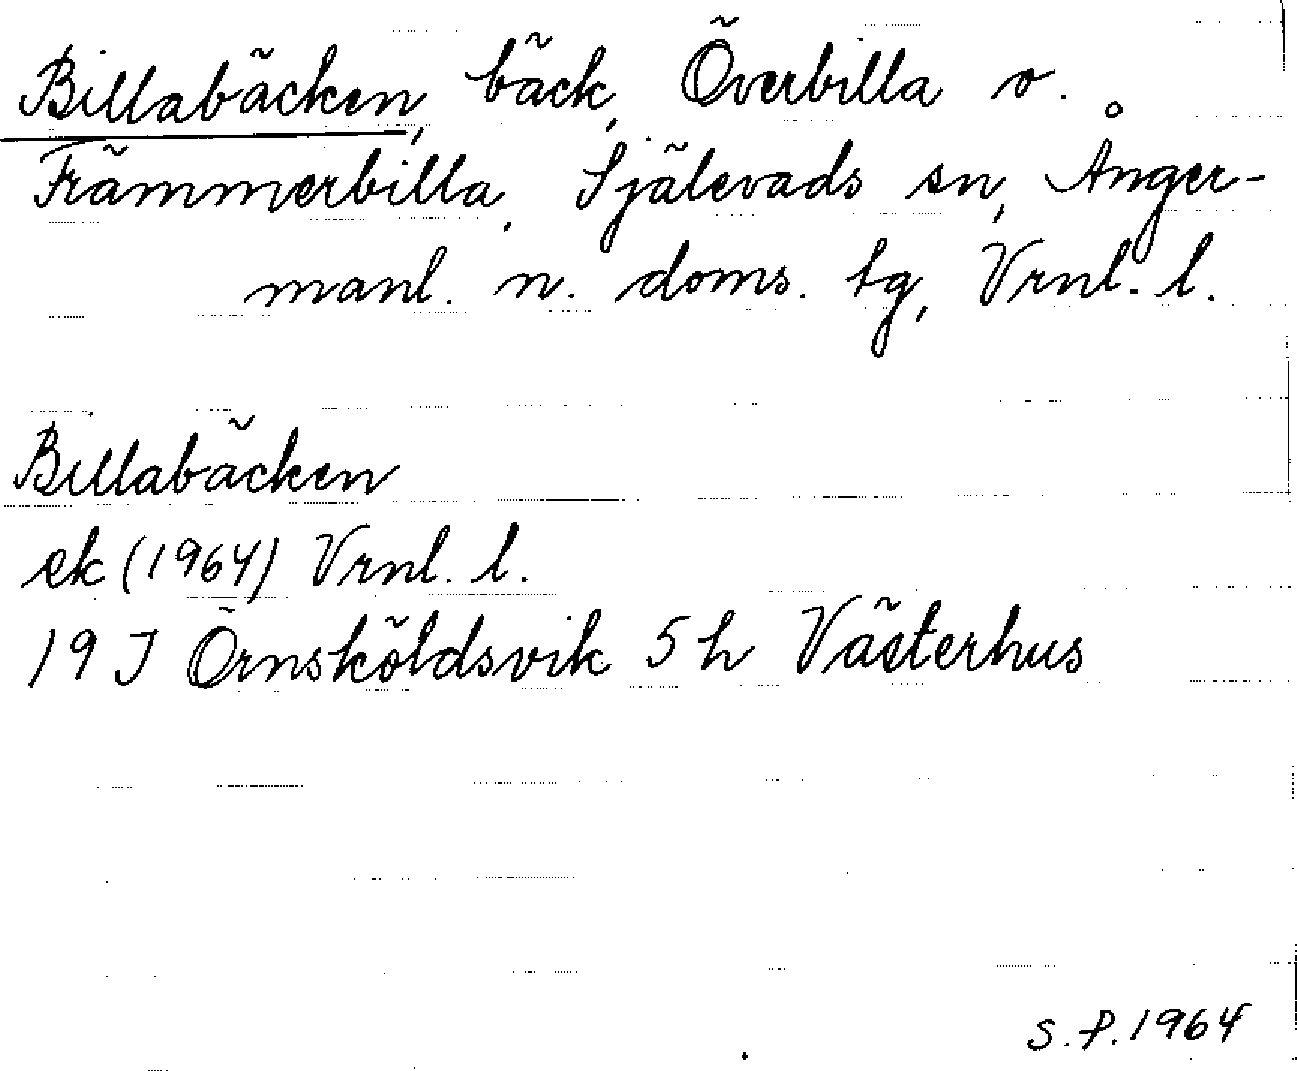 Billabäcken, bäck, Överbilla o.
Främmerbilla, Själevads sn, Ånger-
manl. n. doms. tg, Vrnl. l.
Billabäcken
ek (1964) Vrnl. l.
19 J Örnsköldsvik 5 h Västerhus
S. P. 1964